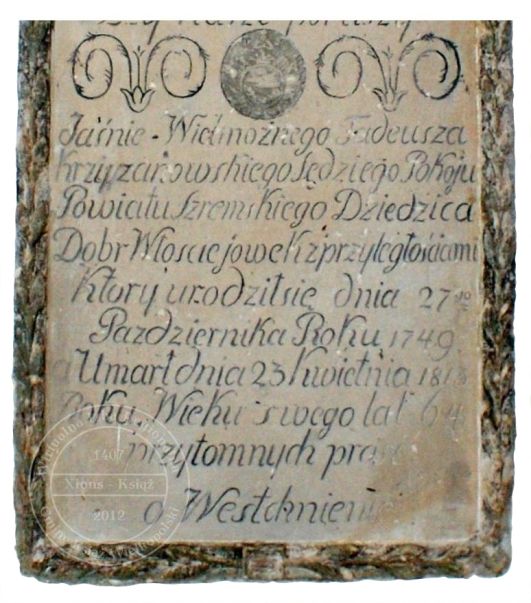 Jaśnie - Wielmożnego Tadeusza
Krzyżanowskiego Sędziego Pokoju
Powiatu Szremskiego Dziedzica
Dobr Włosciejowek z przyległościami
Ktory urodził się dnia 27go
Pazdziernika Roku 1749
a Umarł dnia 23 Kwietnia 1813
Roku Wieku swego lat 64
przytomnych
o Westchnienie
1407
Xions - Książ
2012